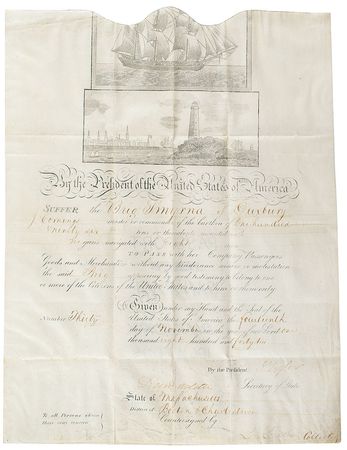 By the President of the United States of America
SUFFER the Brig Smyrna of Duxbury
master or commander of the burthen of One hundred
Ninety six tons or thereabouts
guns navigated with Eight
TO PASS with her Company Passengers
Goods and Merchandize without any hinderance seizure or molestation
the said Brig appearing by good testimony to belong to one
or more of the Citizens of the United States and to him or them only
Given under my Hand and the Seal of the
Number Thirty United States of America the fourteenth
day of November in the year of our Lord one
thousand eight hundred and forty
By the President
Secretary of State
State of Massachusetts
District of Boston & Charlestown
To all Persons whom Countersigned by
these may concern